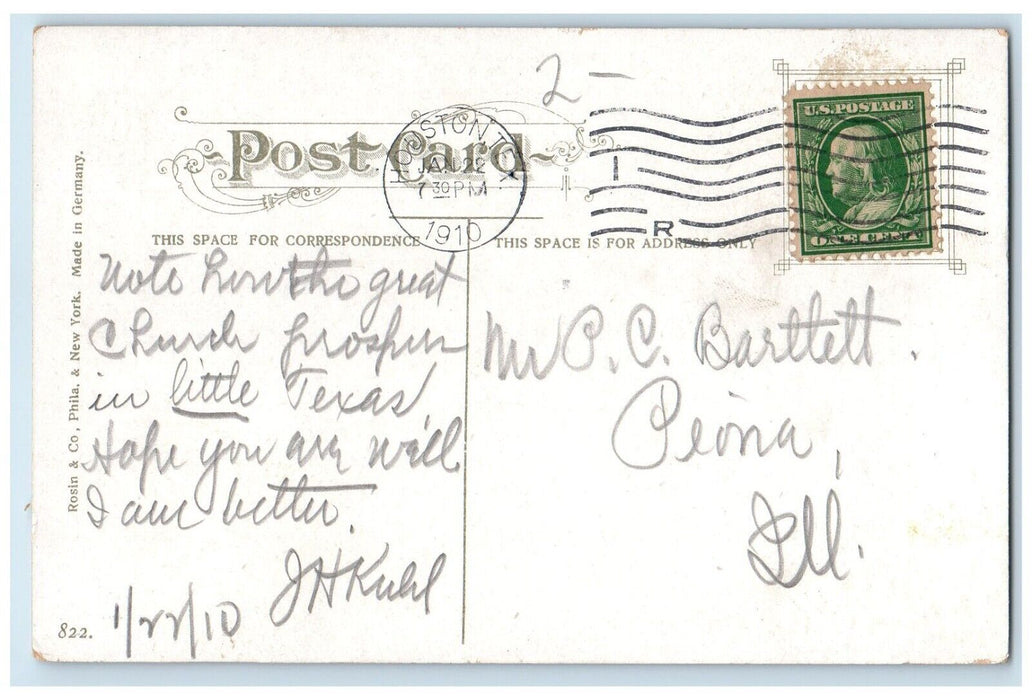 2 —
Post Card
HOUSTON, TEX.
JAN 22
7 30 PM
1910
1
R
U.S. POSTAGE
ONE CENT
THIS SPACE FOR CORRESPONDENCE
THIS SPACE IS FOR ADDRESS ONLY
Rosin & Co, Phila. & New York. Made in Germany.
Note how the great
Church prospers
in little Texas.
Hope you are well
I am better.
JH
1/22/10
822.
Mr P. C. Bartlett.
Peoria,
Ill.